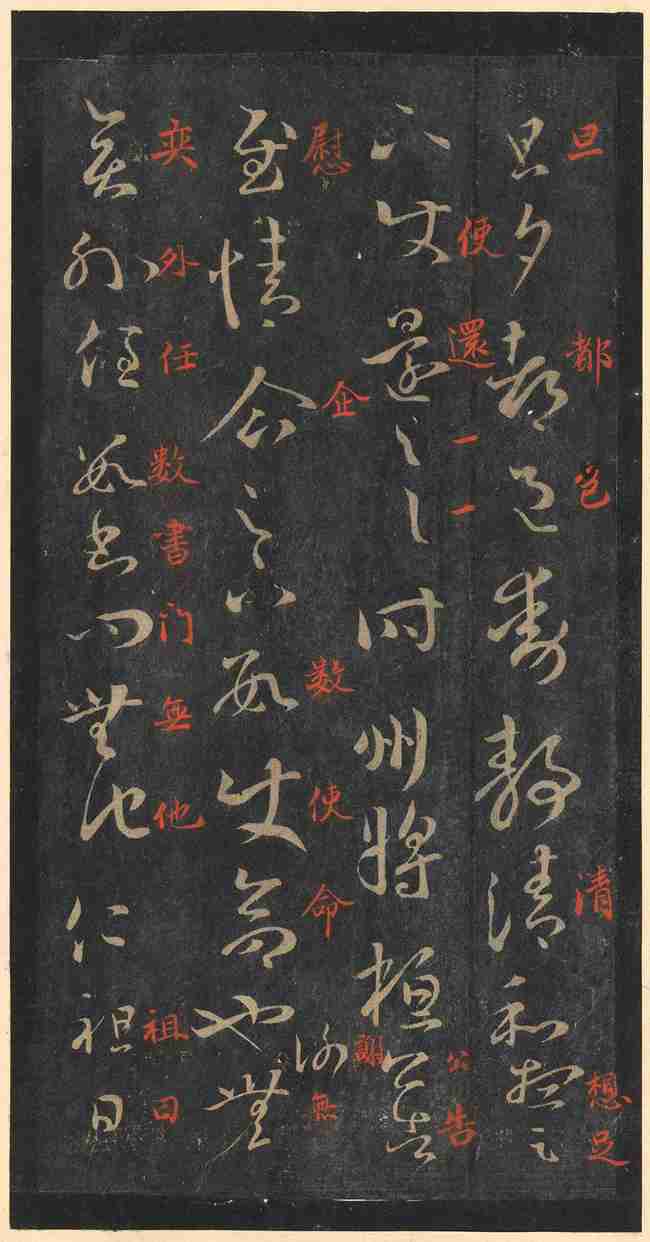 旦都邑清想足
旦夕都邑動靜清和想足
便還一一公告
下使還一一時州將桓公告
慰企数使命謝無
慰情企足下數使命也謝無
奕外任数書门無他祖日
奕外任數書問無他仁祖日